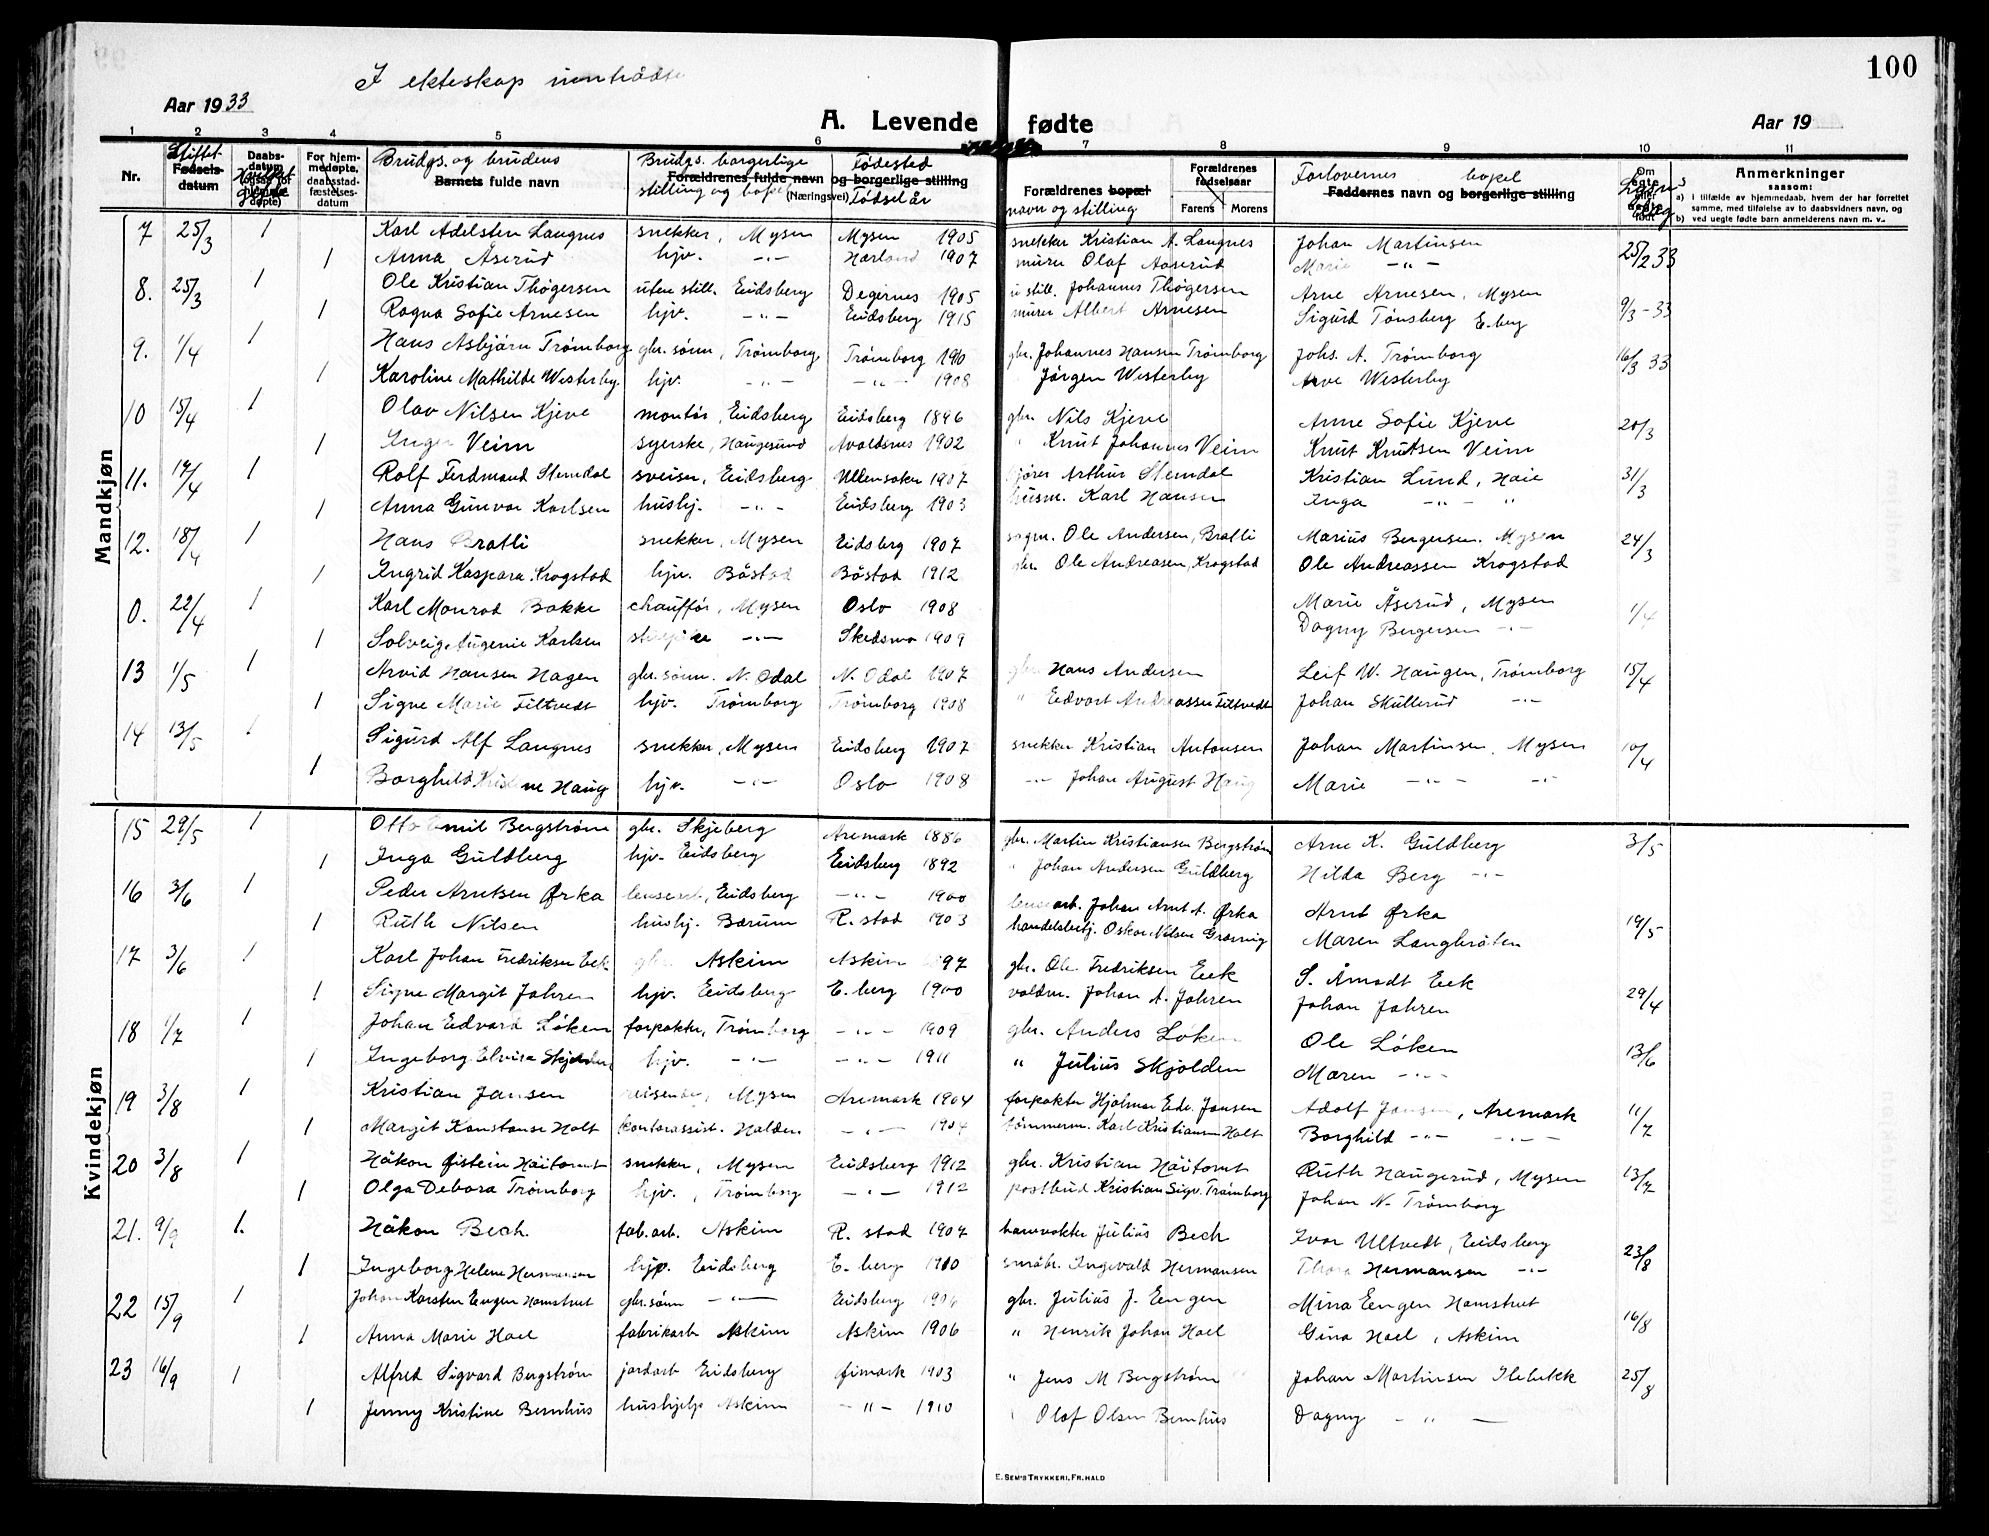 100
I ekteskap innträdte
Aar 1933
A. Levende fødte
Aar 19
1 2 3 4 5 6 7 8 9 10 11
Nr. Stiftet Fødsels-datum Daabs-datum For hjemmedøpte, daabsstadfæstelsesdatum Brudgs. og brudens Barnets fulde navn Brudgs. borgerlige stilling og bopel Forældrenes fulde navn og borgerlige stilling (Næringsvei) Fødested Fødselår Forældrenes bopæl navn og stilling Forældrenes fødselsaar Farens Morens Forlovernes bopel Faddernes navn og borgerlige stilling Om egte eller uegte født Anmerkninger saasom:
a) I tilfælde av hjemmedaab, hvem der har forrettet samme, med tilføielse av to daabsvidners navn, og
b) ved uegte fødte barn anmelderens navn m. v.
Mandkjøn
7 25/3 1 Karl Adelsten Langnes snekker, Mysen Mysen 1905 snekker Kristian A. Langnes Johan Martinsen 25/2 33
1 Anna Åserud hjv. -"- Hærland 1907 murer Olaf Aaserud Marie -"-
8. 25/3 1 Ole Kristian Thøgersen uten still. Eidsberg Degernes 1905 u still. Johannes Thøgersen Arne Arnesen, Mysen 9/3-33
1 Ragna Sofie Arnesen hjv. -"- Eidsberg 1915 murer Albert Arnesen Sigurd Tønsberg E.berg
9. 1/4 1 Hans Asbjörn Trømborg gbr. sønn, Trømborg Trømborg 1910 gbr. Johannes Hansen Trømborg Johs. A. Trømborg 16/3 33
1 Karoline Mathilde Westerby hjv. -"- -"- 1908 Jörgen Westerby Arve Westerby
10 15/4 1 Olav Nilsen Kjeve montør, Eidsberg Eidsberg 1896 gbr. Nils Kjeve Anne Sofie Kjeve 20/3
1 Inger Veim syerske, Haugesund Avaldsnes 1902 " Knut Johannes Veim Knut Knutsen Veim
11. 17/4 1 Rolf Ferdinand Stemdal sveiser, Eidsberg Ullensaker 1907 kjører Arthur Stemdal Kristian Lund, Haie 31/3
1 Anna Gunvor Karlsen hushj. -"- Eidsberg 1903 husm. Karl Hansen Inga -"- "
12. 18/4 1 Hans Bratli snekker, Mysen Eidsberg 1907 Ole Andersen, Bratli Marius Bergersen. Mysen 24/3
1 Ingrid Kaspara Krogstad hjv. Båstad Båstad 1912 gbr. Ole Andreasen, Krogstad Ole Andreassen Krogstad
0. 22/4 1 Karl Monrad Bakke chauffør, Mysen Oslo 1908 Marie Åserud, Mysen 1/4
1 Solveig Augenie Karlsen -"- Skedsmo 1909 Dagny Bergersen -"-
13 1/5 1 Arvid Hansen Hagen gbr. sønn. N. Odal N. Odal 1907 gbr. Hans Andersen Leif W. Haugen, Trømborg 15/4
1 Signe Marie Filtvedt hjv. Trømborg Trømborg 1908 " Edvart Andreassen Filtvedt Johan Skullerud -"-
14 13/5 1 Sigurd Alf Langnes snekker, Mysen Eidsberg 1907 snekker Kristian Antonsen Johan Martinsen, Mysen 10/4
1 Borghild Kristine Haug hjv. -"- Oslo 1908 -"- Johan August Haug Marie -"- -"-
Kvindekjøn
15 29/5 1 Otto Emil Bergstrøm gbr. Skjeberg Aremark 1886 gbr. Martin Kristiansen Bergstrøm Arne K. Guldberg 3/5
1 Inga Guldberg hjv. Eidsberg Eidsberg 1892 " Johan Andersen Guldberg Hilda Berg -"-
16 3/6 1 Peder Arntsen Ørka lensearb., Eidsberg -"- 1900 lensearb. Johan Arnt A. Ørka Arnt Ørka 19/5
1 Ruth Nilsen hushj. Bærum R. stad 1903 handelsbetj. Oskar Nilsen Maren Langbråten
17 3/6 1 Karl Johan Fredriksen Eek gbr. Askim Askim 1897 gbr. Ole Fredriksen Eek S. Åmodt Eek 29/4
1 Signe Margit Jahren hjv. Eidsberg E. berg 1900 valdm. Johan A. Jahren Johan Jahren
18 1/7 1 Johan Edvard Løken forpakter, Trømborg -"- 1909 gbr. Anders Løken Ole Løken 13/6
1 Ingeborg Elvira Skjølden hjv. -"- -"- 1911 " Julius Skjolden Maren -"-
19 3/8 1 Kristian Jansen reisende, Mysen Aremark 1904 forpakter Hjalmar Edv. Jansen Adolf Jansen, Aremark 11/7
1 Margit Konstanse Holt kontorassist. Halden -"- 1904 tømmerm. Karl Kristiansen Holt Borghild -"- -"-
20 3/8 1 Håkon Øistein Håitomt snekker, Mysen Eidsberg 1912 gbr. Kristian Håitomt Ruth Haugerud, Mysen 13/7
1 Olga Debora Trømborg hjv., Trømborg -"- 1912 postbud Kristian Sigv. Trømborg Johan N. Trømborg
21. 9/9 1. Håkon Bech. fab.arb. Askim R. stad 1907 banevokter Julius Bech Ivar Ultvedt, Eidsberg 23/8
1 Ingeborg Helene Hermansen hjp. Eidsberg E. berg 1910 småbr. Ingevald Hermansen Thora Hermansen -"-
22 15/9 1 Johan Karsten Engen Hamstvet gbr. sønn -"- Eidsberg 1906 gbr. Julius J. Eengen Mina Eengen Hamstvet 16/8
1 Anna Marie Hoel fabrikarb Askim Askim 1906 " Henrik Johan Hoel Gina Hoel, Askim
23 16/9 1 Alfred Sigvard Bergstrøm jordarb Eidsberg Øimark 1903 " Jens M Bergstrøm Johan Martinsen Ilebekk 25/8
1 Jenny Kristine Bernhus hushjelp Askim -"- 1910 Olaf Olsen Bernhus Dagny -"-
E. SEM'S TRYKKERI, FR. HALD